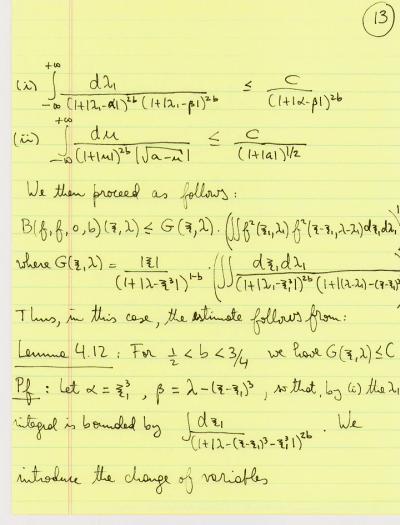 13
(i) ∫_{-∞}^{+∞} dλ₁ / (1+|λ₁-α|)^{2b} (1+|λ₁-β|)^{2b} ≤ C / (1+|α-β|)^{2b}
(ii) ∫_{-∞}^{+∞} du / (1+|u|)^{2b} |√a-u| ≤ C / (1+|a|)^{1/2}
We then proceed as follows:
B(f,f,0,b)(ξ,λ) ≤ G(ξ,λ) · (∫∫ f²(ξ₁,λ₁) f²(ξ-ξ₁,λ-λ₁) dξ₁dλ₁)
where G(ξ,λ) = |ξ| / (1+|λ-ξ³|)^{1-b} · (∫∫ dξ₁dλ₁ / (1+|λ₁-ξ₁³|)^{2b} (1+|(λ-λ₁)-(ξ-ξ₁
Thus, in this case, the estimate follows from:
Lemma 4.12 : For 1/2 < b < 3/4 we have G(ξ,λ) ≤ C
Pf : Let α = ξ₁³, β = λ-(ξ-ξ₁)³, so that, by (i) the λ₁
integral is bounded by ∫ dξ₁ / (1+|λ-(ξ-ξ₁)³-ξ₁³|)^{2b}. We
introduce the change of variables